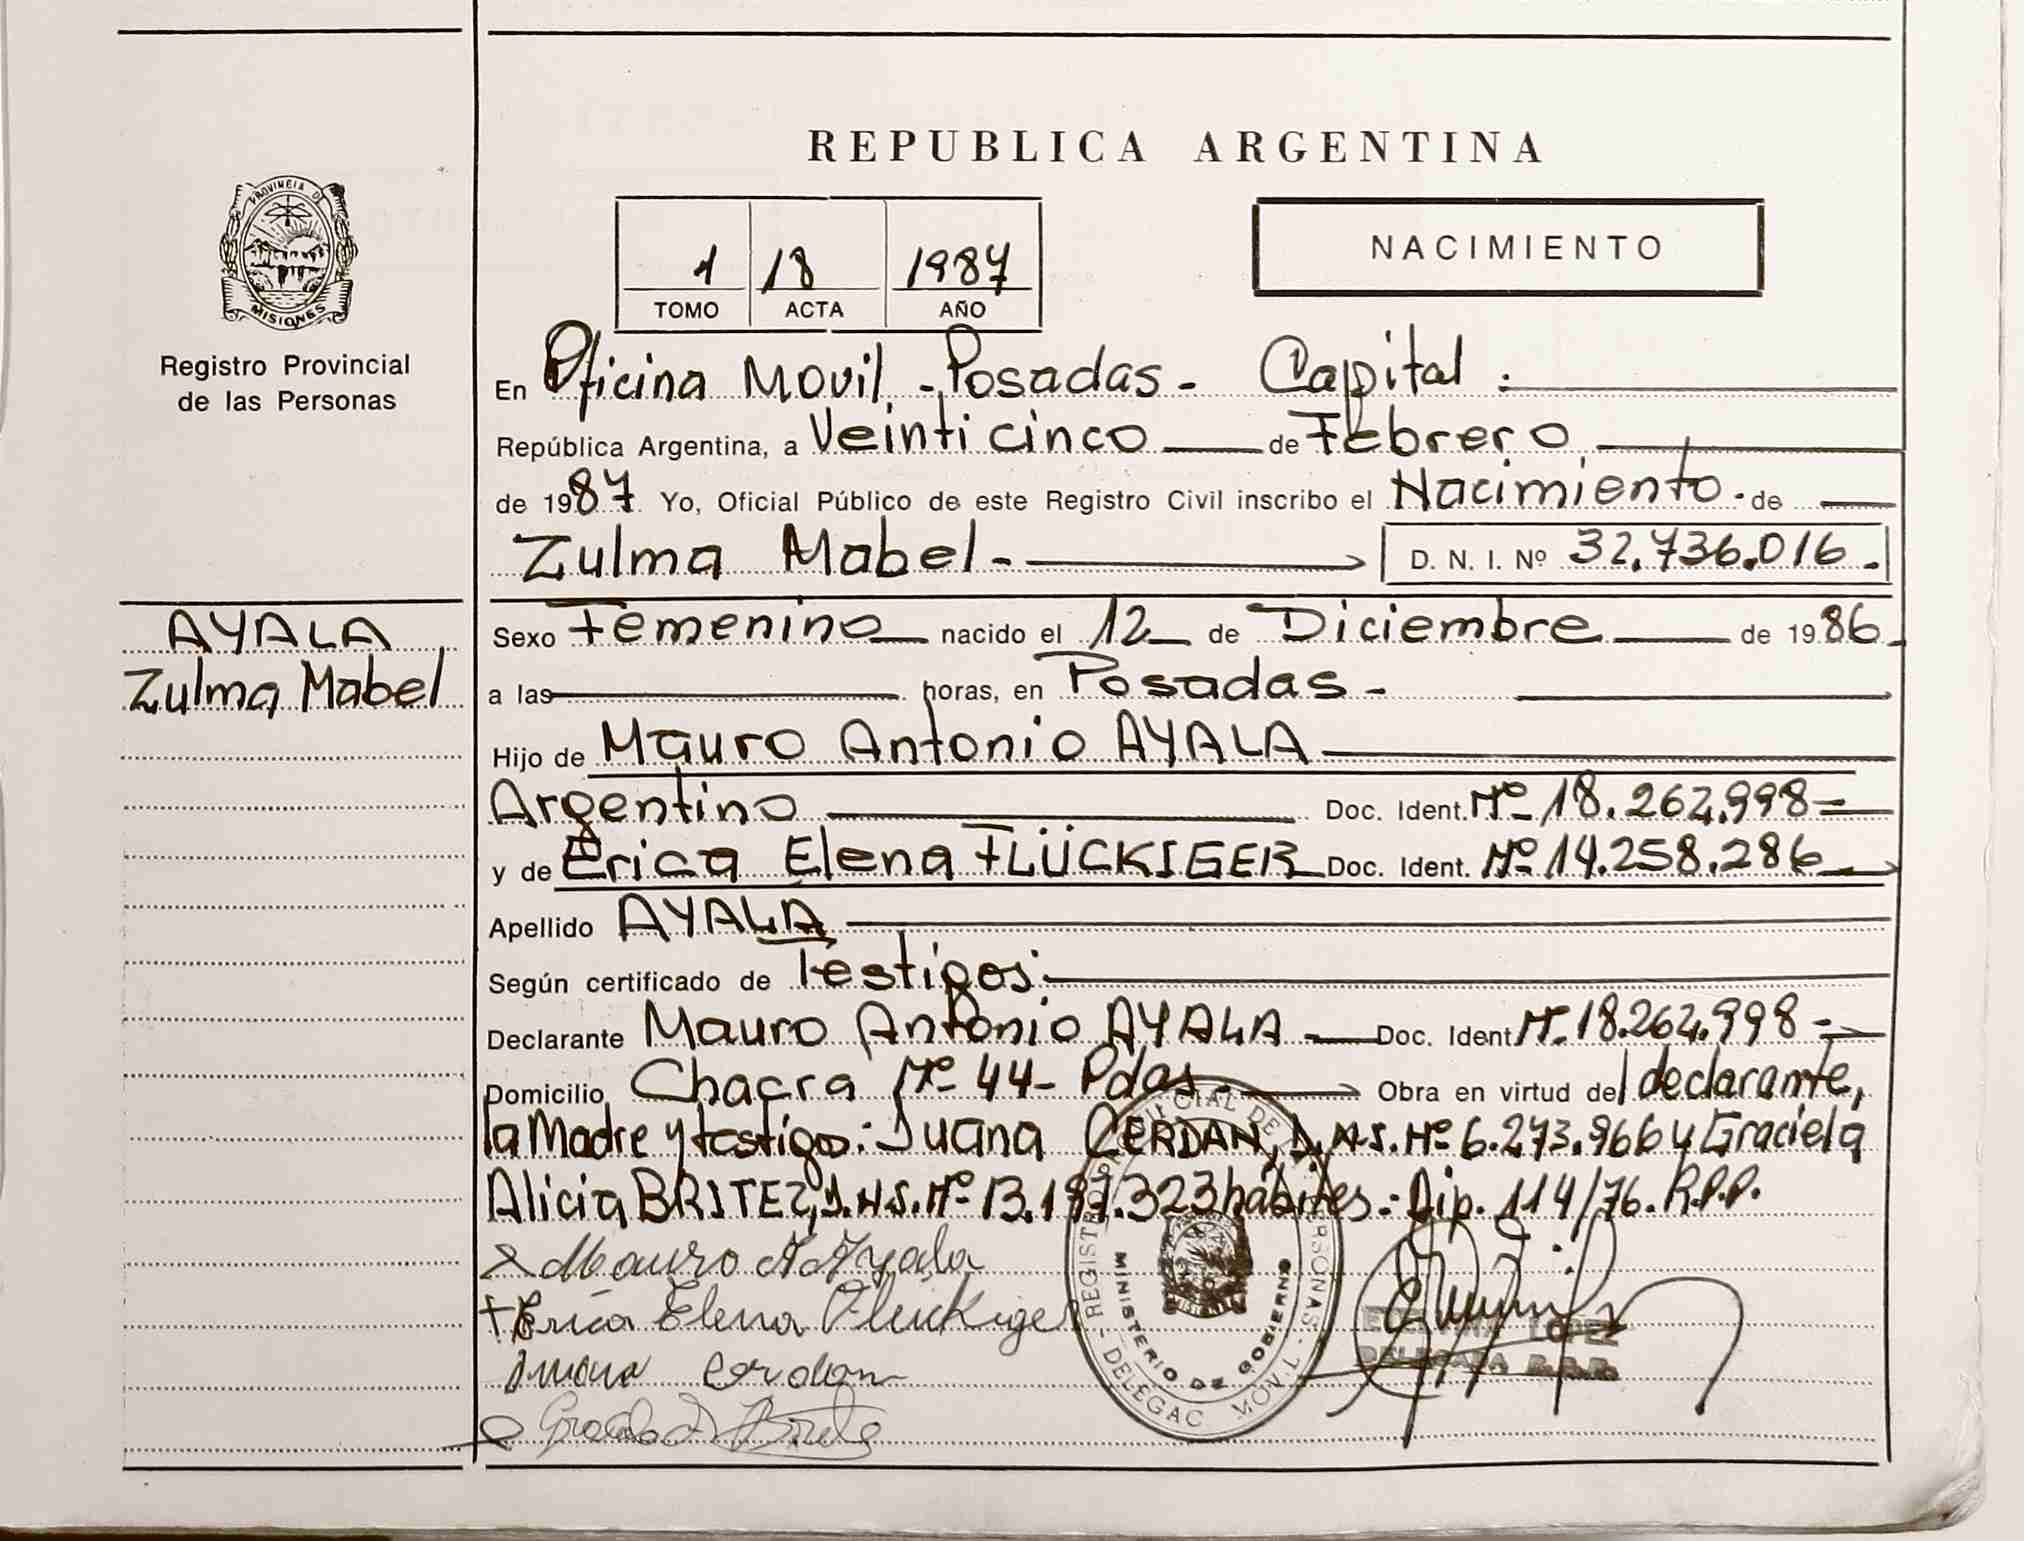 REPUBLICA ARGENTINA
PROVINCIA DE
MISIONES
Registro Provincial
de las Personas
1 18 1987
TOMO ACTA AÑO
NACIMIENTO
En Oficina Movil - Posadas - Capital.
República Argentina, a Veinticinco de Febrero
de 1987 Yo, Oficial Público de este Registro Civil inscribo el Nacimiento. de
Zulma Mabel - D. N. I. Nº 32.736.016.
AYALA
Zulma Mabel
Sexo Femenino nacido el 12 de Diciembre de 1986
a las horas, en Posadas -
Hijo de Mauro Antonio AYALA
Argentino Doc. Ident. Nº 18.262.998=
y de Erica Elena FLÜCKIGER Doc. Ident. Nº 14.258.286
Apellido AYALA
Según certificado de Testigos:
Declarante Mauro Antonio AYALA - Doc. Ident Nº 18.262.998-
Domicilio Chacra Nº 44- Pdas. Obra en virtud del declarante,
la Madre y testigos: Juana CERDAN, D.N.I. Nº 6.273.966 y Graciela
Alicia BRITEZ, D.N.I. Nº 13.197.323 hábiles.- Dip. 114/76. R.P.P.
Mauro A Ayala
Erica Elena Fluckiger
Juana Cerdan
Graciela A Britez
REGISTRO PROVINCIAL DE LAS PERSONAS - DELEGAC MÓVIL -
MINISTERIO DE GOBIERNO
LOPEZ
DELEGADA R.P.P.